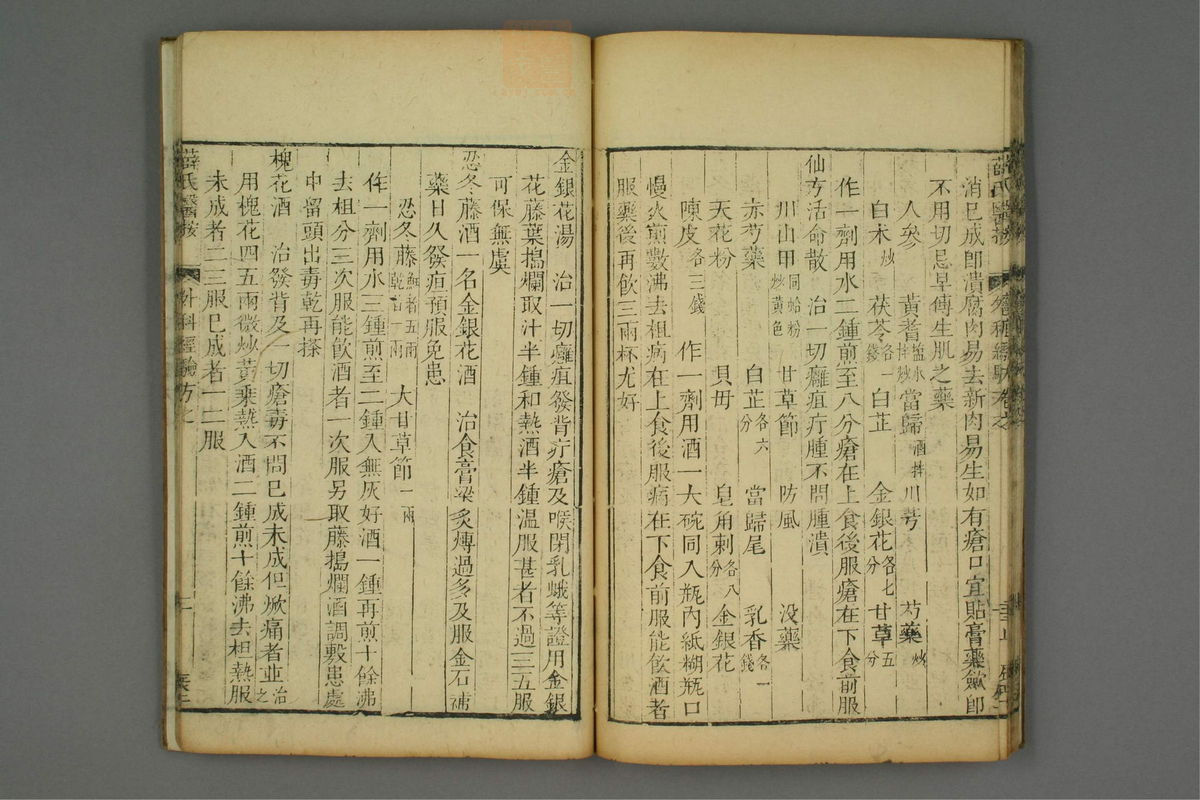 消已成卽潰腐肉易去新肉易生如有瘡口宜貼膏藥歛卽
不用切忌早傅生肌之藥
人參 黃耆鹽水拌炒 當歸酒拌 川芎 芍藥炒
白朮炒 茯苓各一錢 白芷 金銀花各七分 甘草五分
作一劑用水二鍾煎至八分瘡在上食後服瘡在下食前服
仙方活命散 治一切癰疽疔腫不問腫潰
川山甲同蛤粉炒黃色 甘草節 防風 没藥
赤芍藥 白芷各六分 當歸尾 乳香各一錢
天花粉 貝毋 皂角刺各八分 金銀花
陳皮各三錢 作一劑用酒一大碗同入瓶內紙糊瓶口
慢火煎數沸去柤病在上食後服病在下食前服能飲酒者
服藥後再飲三兩杯尤好
金銀花湯 治一切癰疽發背疔瘡及喉閉乳蛾等證用金銀
花藤葉搗爛取汁半鍾和熱酒半鍾温服甚者不過三五服
可保無虞
忍冬藤酒一名金銀花酒 治食膏粱炙煿過多及服金石補
藥日久發疽預服免患
忍冬藤鮮者五兩乾者一兩 大甘草節一兩
作一劑用水三鍾煎至二鍾入無灰好酒一鍾再煎十餘沸
去柤分三次服能飲酒者一次服另取藤搗爛酒調敷患處
中留頭出毒乾再搽
槐花酒 治發背及一切瘡毒不問已成未成但焮痛者並治之
用槐花四五兩微炒黃乘熱入酒二鍾煎十餘沸去柤熱服
未成者二三服已成者一二服
薛氏醫按 外科經驗方之